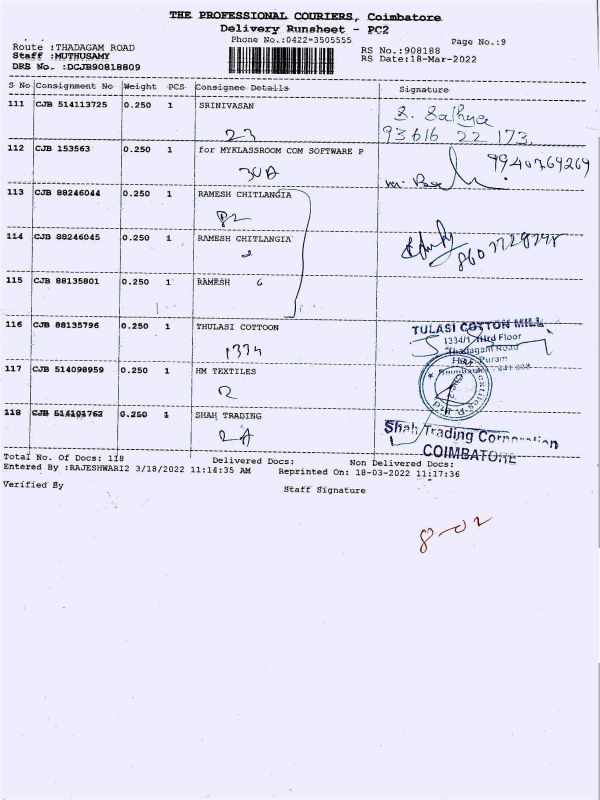 THE PROFESSIONAL COURIERS, Coimbatore
Delivery Runsheet - PC2
Phone No.:0422-3505555
Page No.:9
Route :THADAGAM ROAD
RS No.:908188
Staff :MUTHUSAMY
RS Date:18-Mar-2022
DRS No. :DCJB90818809
S No Consignment No Weight PCS Consignee Details Signature
111 CJB 514113725 0.250 1 SRINIVASAN
S. Sathya
23 93616 22 173.
112 CJB 153563 0.250 1 for MYKLASSROOM COM SOFTWARE P
30A
9940769269
113 CJB 88246044 0.250 1 RAMESH CHITLANGIA
114 CJB 88246045 0.250 1 RAMESH CHITLANGIA
2
115 CJB 88135801 0.250 1 RAMESH 6
116 CJB 88135796 0.250 1 THULASI COTTOON
TULASI COTTON MILL
1334/1 IIIrd Floor
1334
Thadagam Road
Puram
117 CJB 514098959 0.250 1 HM TEXTILES
118 CJB 514101762 0.250 1 SHAH TRADING
2A
Shah Trading Corporation
COIMBATORE
Total No. Of Docs: 118 Delivered Docs: Non Delivered Docs:
Entered By :RAJESHWARI2 3/18/2022 11:14:35 AM Reprinted On: 18-03-2022 11:17:36
Verified By Staff Signature
8-02